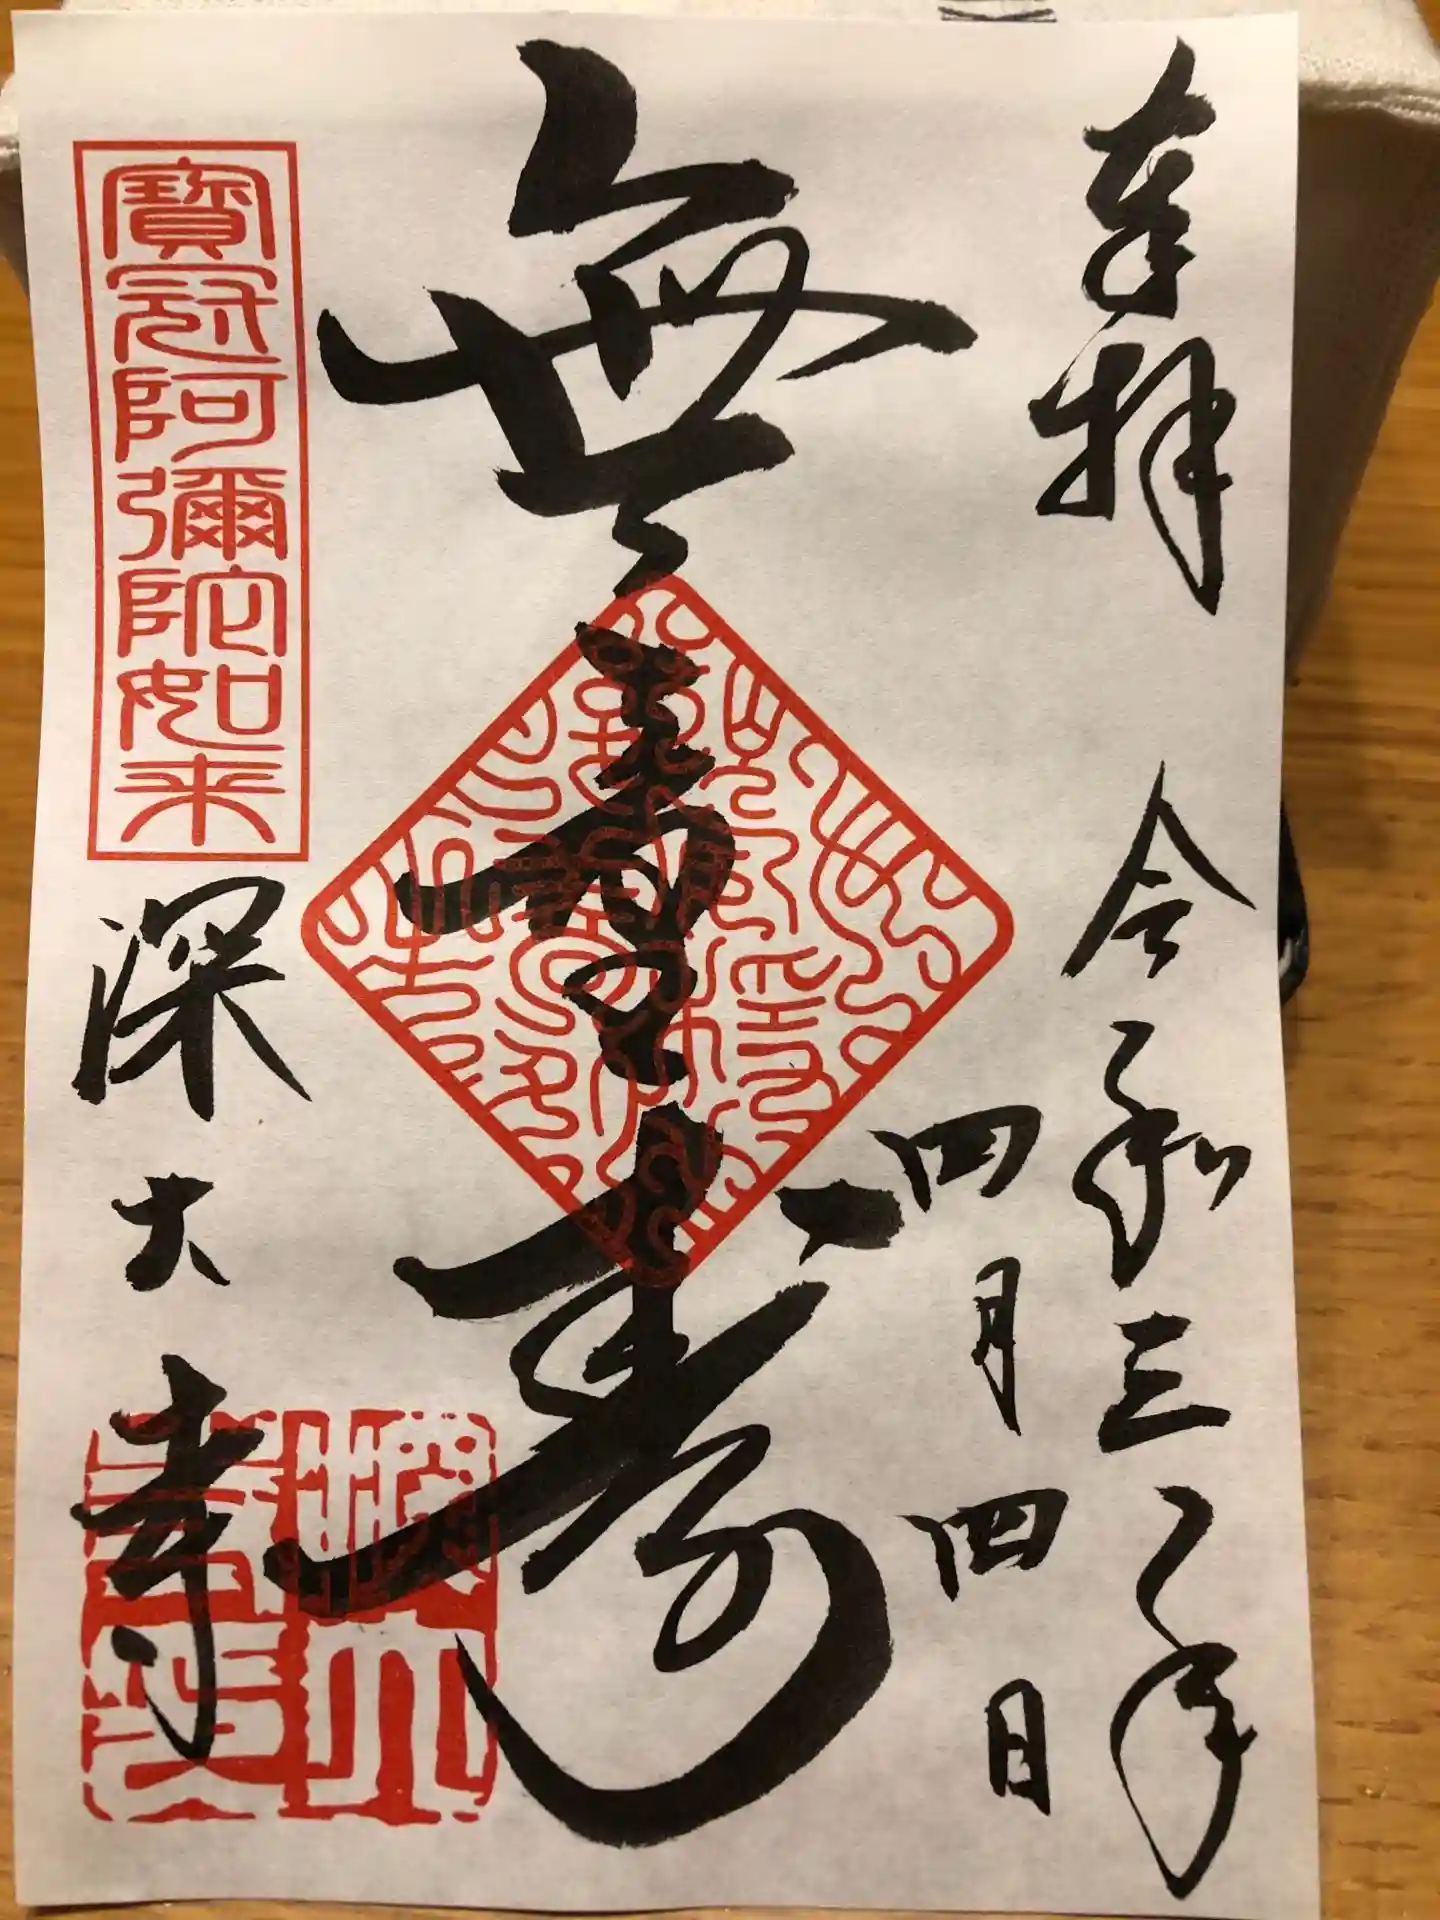 奉拝
令和三年
四月四日
無量壽
寶冠阿彌陀如来
深大寺